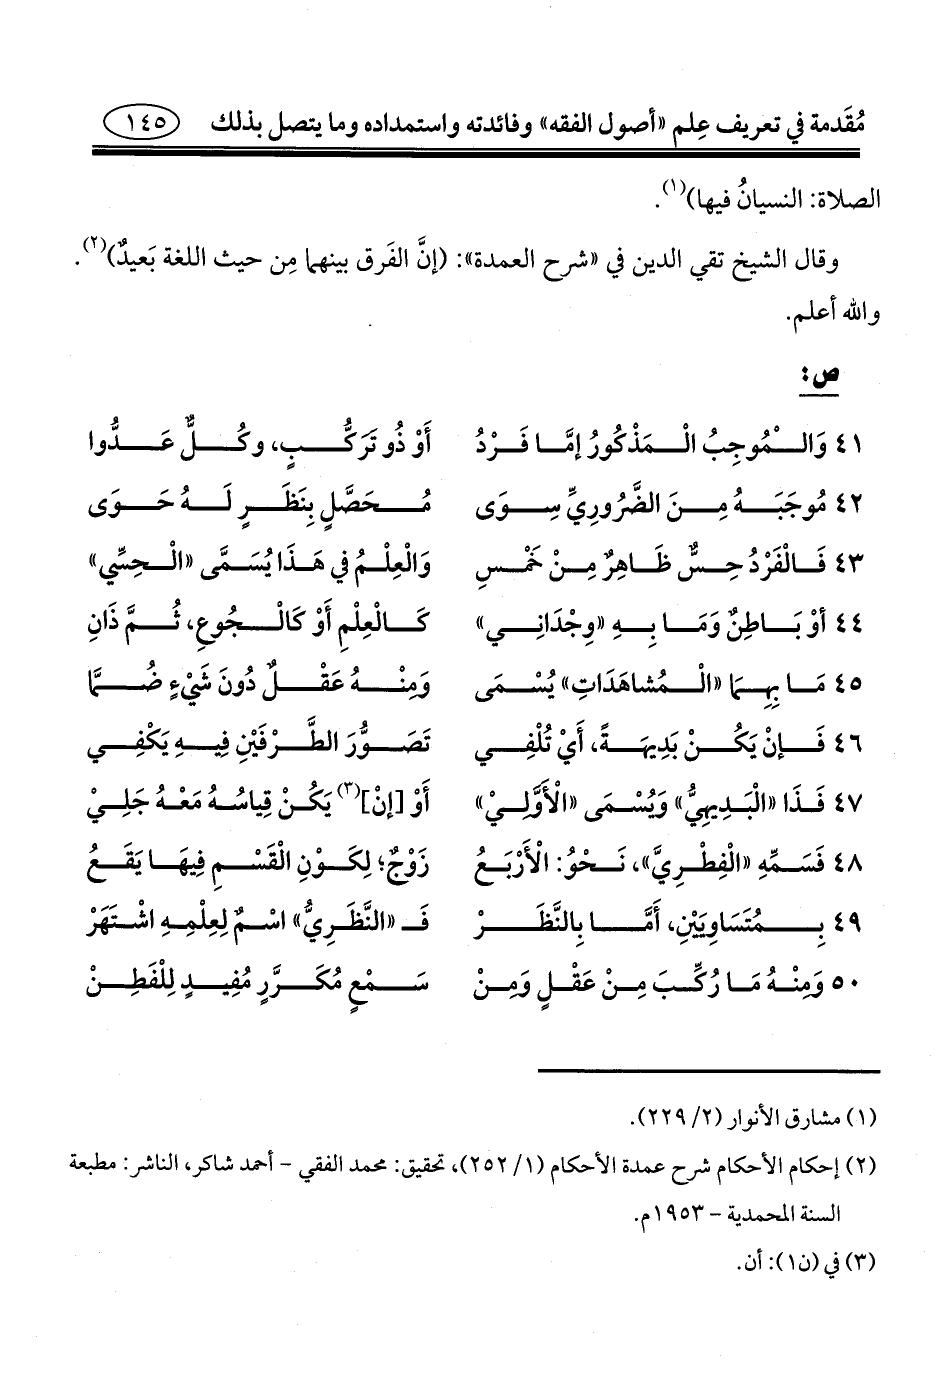 مُقَدمة في تعريف عِلم «أصول الفقه» وفائدته واستمداده وما يتصل بذلك ١٤٥
الصلاة: النسيانُ فيها)(١).
وقال الشيخ تقي الدين في «شرح العمدة»: (إنَّ الفَرق بينهما مِن حيث اللغة بَعيدٌ)(٢).
والله أعلم.
ص:
٤١ وَالْمُوجِبُ الْمَذْكُورُ إمَّا فَرْدُ أَوْ ذُو تَرَكُّبٍ، وكُلٌّ عَدُّوا
٤٢ مُوجَبَهُ مِنَ الضَّرُورِيِّ سِوَى مُحَصَّلٍ بِنَظَرٍ لَهُ حَوَى
٤٣ فَالْفَرْدُ حِسٌّ ظَاهِرٌ مِنْ خَمْسِ وَالْعِلْمُ في هَذَا يُسَمَّى «الْحِسِّي»
٤٤ أوْ بَاطِنٌ وَمَا بِهِ «وِجْدَانِي» كَالْعِلْمِ أَوْ كَالْجُوعِ، ثُمَّ ذَانِ
٤٥ مَا بِهِمَا «الْمُشاهَدَاتِ» يُسْمَى وَمِنْهُ عَقْلٌ دُونَ شَيْءٍ ضُمَّا
٤٦ فَإنْ يَكُنْ بَدِيهَةً، أَيْ تُلْفِي تَصَوُّرَ الطَّرْفَيْنِ فِيهِ يَكْفِي
٤٧ فَذَا «الْبَدِيهِيُّ» وَيُسْمَى «الْأَوَّلِيْ» أَوْ [إنْ](٣) يَكُنْ قِياسُهُ مَعْهُ جَلِيْ
٤٨ فَسَمِّهِ «الْفِطْرِيَّ»، نَحْوُ: الْأَرْبَعُ زَوْجٌ؛ لِكَوْنِ الْقَسْمِ فِيهَا يَقَعُ
٤٩ بِمُتَسَاوِيَيْنِ، أَمَّا بِالنَّظَرْ فَـ «النَّظَرِيُّ» اسْمٌ لِعِلْمِهِ اشْتَهَرْ
٥٠ وَمِنْهُ مَا رُكِّبَ مِنْ عَقْلٍ وَمِنْ سَمْعٍ مُكَرَّرٍ مُفِيدٍ لِلْفَطِنْ
(١) مشارق الأنوار (٢/ ٢٢٩).
(٢) إحكام الأحكام شرح عمدة الأحكام (١/ ٢٥٢)، تحقيق: محمد الفقي - أحمد شاكر، الناشر: مطبعة
السنة المحمدية - ١٩٥٣م.
(٣) في (ن١): أن.